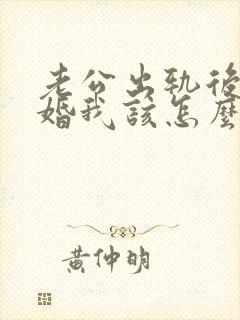 老公出軌後
婚我該怎麼
黃仲明